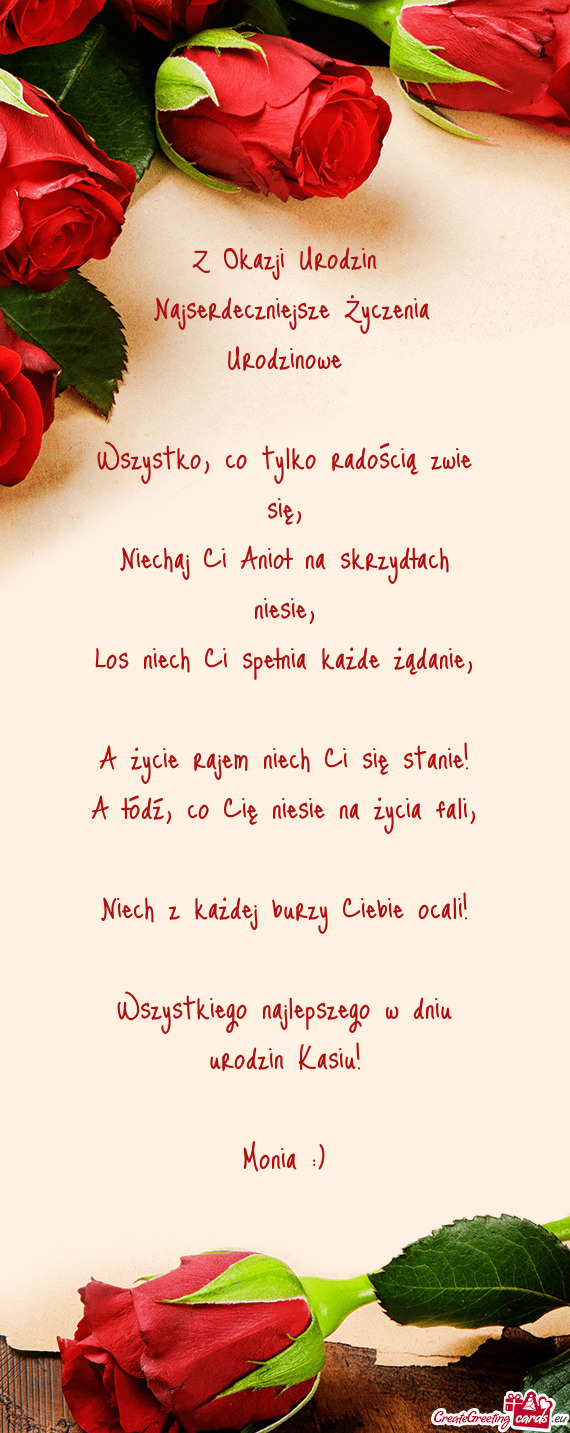 Z Okazji Urodzin
Najserdeczniejsze Życzenia
Urodzinowe
Wszystko, co tylko radością zwie
się,
Niechaj Ci Anioł na skrzydłach
niesie,
Los niech Ci spełnia każde żądanie,
A życie rajem niech Ci się stanie!
A łódź, co Cię niesie na życia fali,
Niech z każdej burzy Ciebie ocali!
Wszystkiego najlepszego w dniu
urodzin Kasiu!
Monia :)
CreateGreeting cards .eu